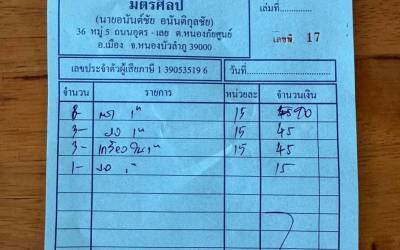 มิตรศิลป์
(นายอนันต์ชัย อนันต์กุลชัย)
36 หมู่ 5 ถนนอุดร - เลย ต.หนองภัยศูนย์
อ.เมือง จ.หนองบัวลำภู 39000
เล่มที่
เลขที่ 17
เลขประจำตัวผู้เสียภาษี 1 39053519 6
วันที่
จำนวน รายการ หน่วยละ จำนวนเงิน
15
3- งอ 1" 15 45
3- 15 45
1- งอ 15